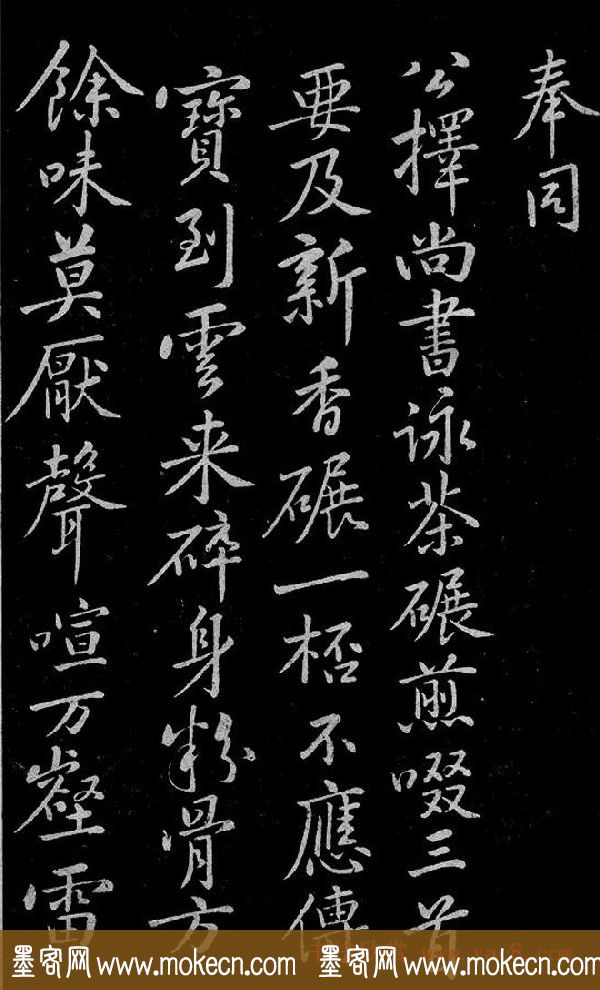 奉同
公擇尚書詠茶碾煎啜三首
要及新香碾一桮不應傳
寶到雲来碎身粉骨方
餘味莫厭聲喧万壑雷
墨客网 www.mokecn.com 墨客网 www.mokecn.com